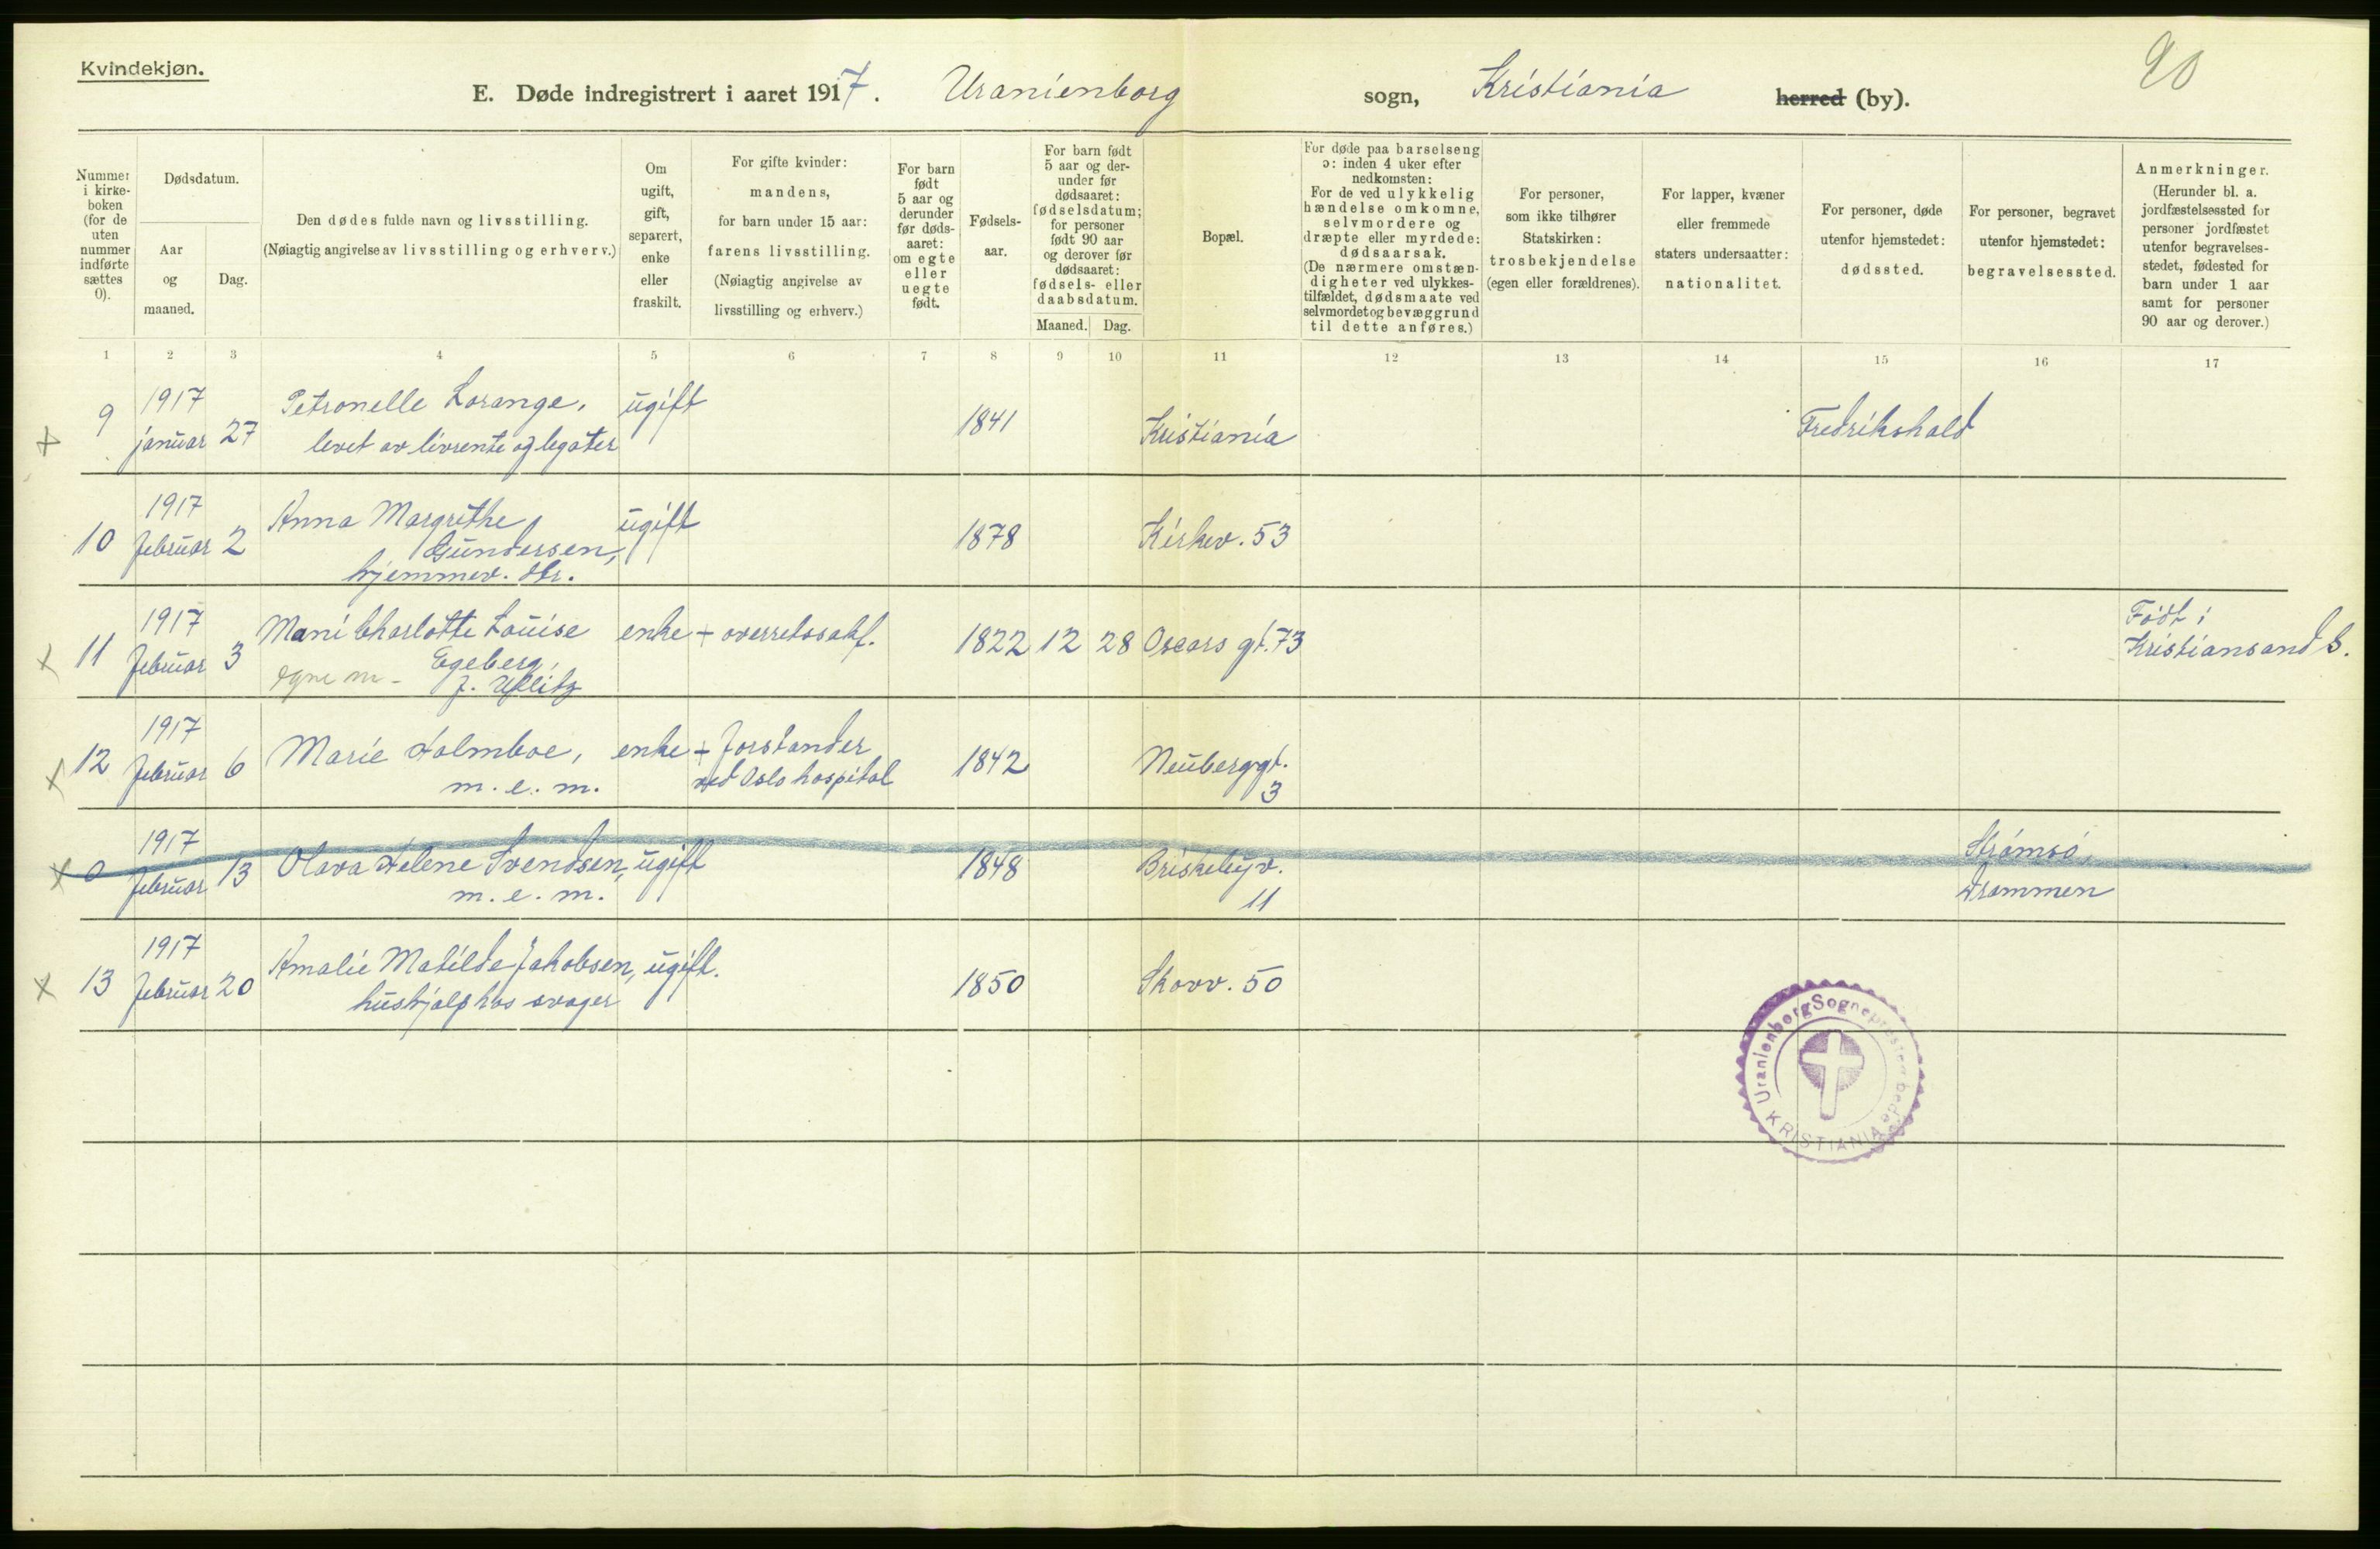 Kvindekjøn.
90
E. Døde indregistrert i aaret 1917. Uranienborg sogn, Kristiania herred (by).
Nummer i kirkeboken (for de uten nummer indførte sættes 0).
Dødsdatum.
Aar og maaned.
Dag.
Den dødes fulde navn og livsstilling.
(Nøiagtig angivelse av livsstilling og erhverv.)
Om ugift, gift, separert, enke eller fraskilt.
For gifte kvinder: mandens, for barn under 15 aar: farens livsstilling.
(Nøiagtig angivelse av livsstilling og erhverv.)
For barn født 5 aar og derunder før dødsaaret: om egte eller uegte født.
Fødselsaar.
For barn født 5 aar og derunder før dødsaaret: fødselsdatum; for personer født 90 aar og derover før dødsaaret: fødsels- eller daabsdatum.
Maaned. Dag.
Bopæl.
For døde paa barselseng ɔ: inden 4 uker efter nedkomsten:
For de ved ulykkelig hændelse omkomne, selvmordere og dræpte eller myrdede: dødsaarsak.
(De nærmere omstændigheter ved ulykkestilfældet, dødsmaate ved selvmordet og bevæggrund til dette anføres.)
For personer, som ikke tilhører Statskirken: trosbekjendelse (egen eller forældrenes).
For lapper, kvæner eller fremmede staters undersaatter: nationalitet.
For personer, døde utenfor hjemstedet: dødssted.
For personer, begravet utenfor hjemstedet: begravelsessted.
Anmerkninger.
(Herunder bl. a. jordfæstelsessted for personer jordfæstet utenfor begravelsesstedet, fødested for barn under 1 aar samt for personer 90 aar og derover.)
1 2 3 4 5 6 7 8 9 10 11 12 13 14 15 16 17
9 1917 januar 27 Petronelle Lorange, ugift 1841 Kristiania Fredrikshald
levet av livrente og legater
10 1917 februar 2 Anna Margrethe Gundersen, ugift 1878 Kirkev. 53
hjemmev. dtr.
11 1917 februar 3 Mani Charlotte Louise enke + overretssakf. 1822 12 28 Oscars gt. 73 Født i Kristiansand S.
egne m - Egeberg,
f.
12 1917 februar 6 Marie Holmboe, enke + forstander ved Oslo hospital 1842 Neuberggt. 3
m. e. m.
0 1917 februar 13 Olava Helene Svendsen, ugift 1848 Briskebyv. 11 Strømsø, Drammen
m. e. m.
13 1917 februar 20 Amalie Matilde Jakobsen, ugift. 1850 Skovv. 50
hushjælp hos svoger
Uranienborg Sogneprestembede
KRISTIANIA